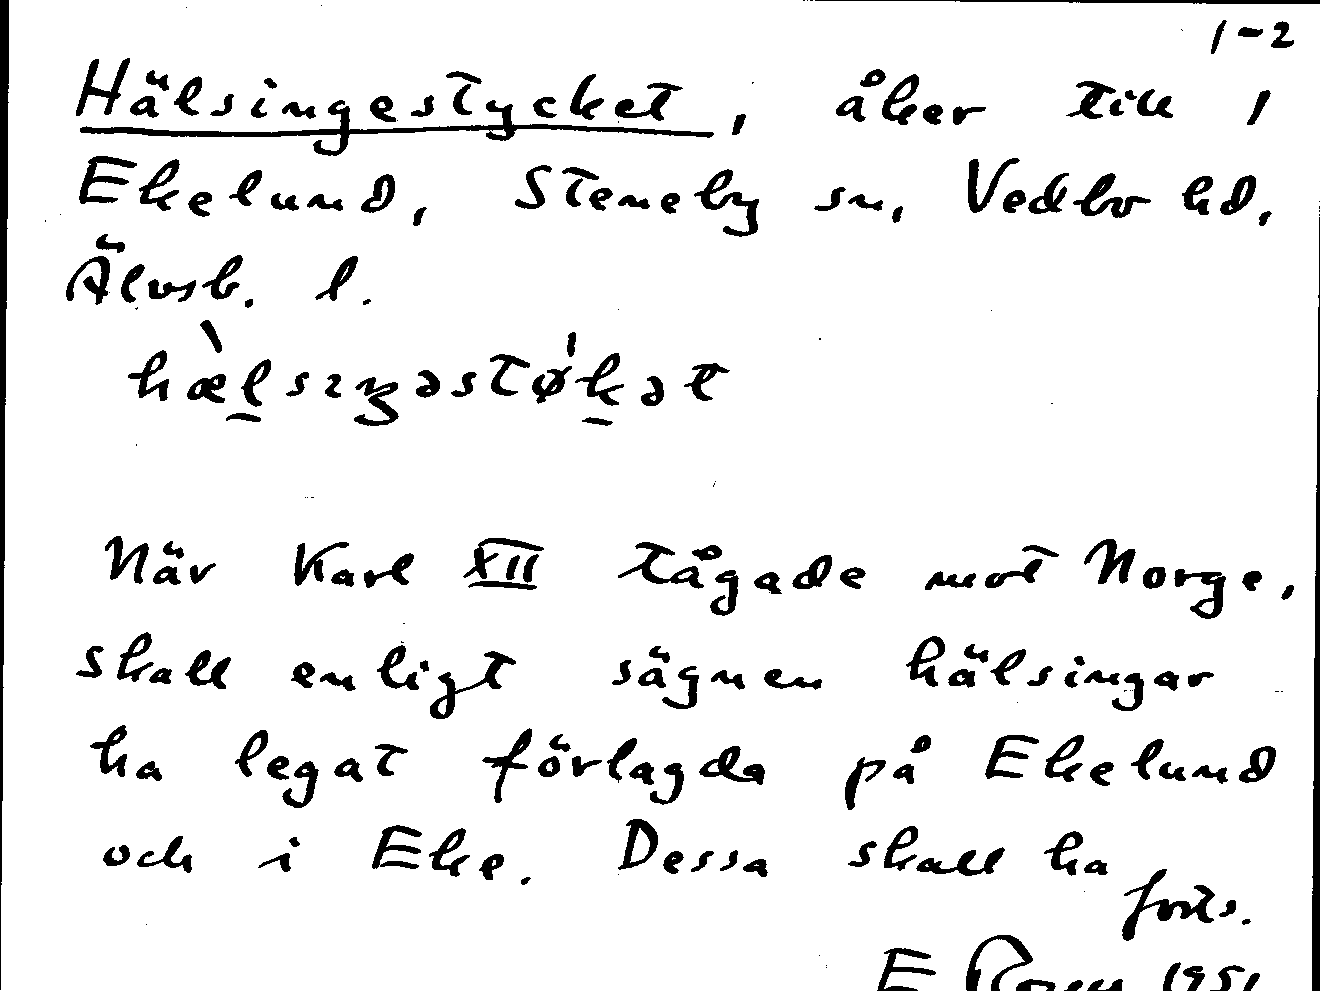 1-2
Hälsingestycket, åker till 1
Ekelund, Steneby sn, Vedbo hd,
Älvsb. l.
hæ̀l̠sɪŋəstø̍k̠ət
När Karl XII tågade mot Norge,
skall enligt sägnen hälsingar
ha legat förlagda på Ekelund
och i Eke. Dessa skall ha
forts.
E Rosen 1951